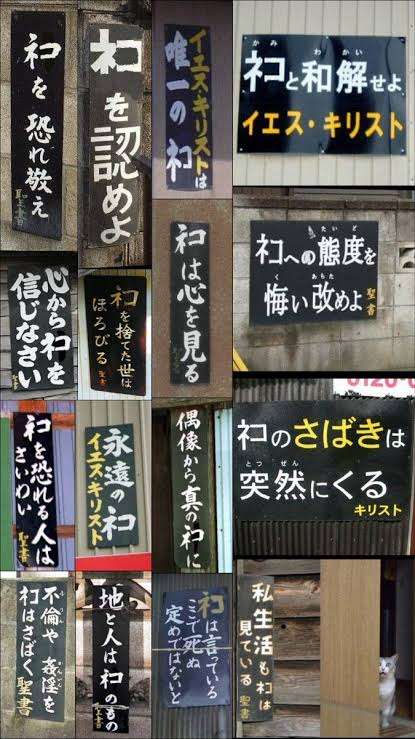 ネコを恐れ敬え
聖書
ネコを認めよ
イエス・キリストは
唯一のネコ
かみ わかい
ネコと和解せよ
イエス・キリスト
ネコは心を見る
たいど
ネコへの態度を
く あらた
悔い改めよ 聖書
心からネコを
信じなさい
聖書
ネコを捨てた世は
ほろびる
聖書
ネコを恐れる人は
さいわい 聖書
永遠のネコ
イエスキリスト
偶像から真のネコに
0120-0
ネコのさばきは
とつ ぜん
突然にくる
キリスト
不倫や姦淫を
かんいん
ネコはさばく 聖書
地と人はネコのもの
聖書
ネコは言っている
ここで死ぬ
定めではないと
私生活もネコは
見ている 聖書